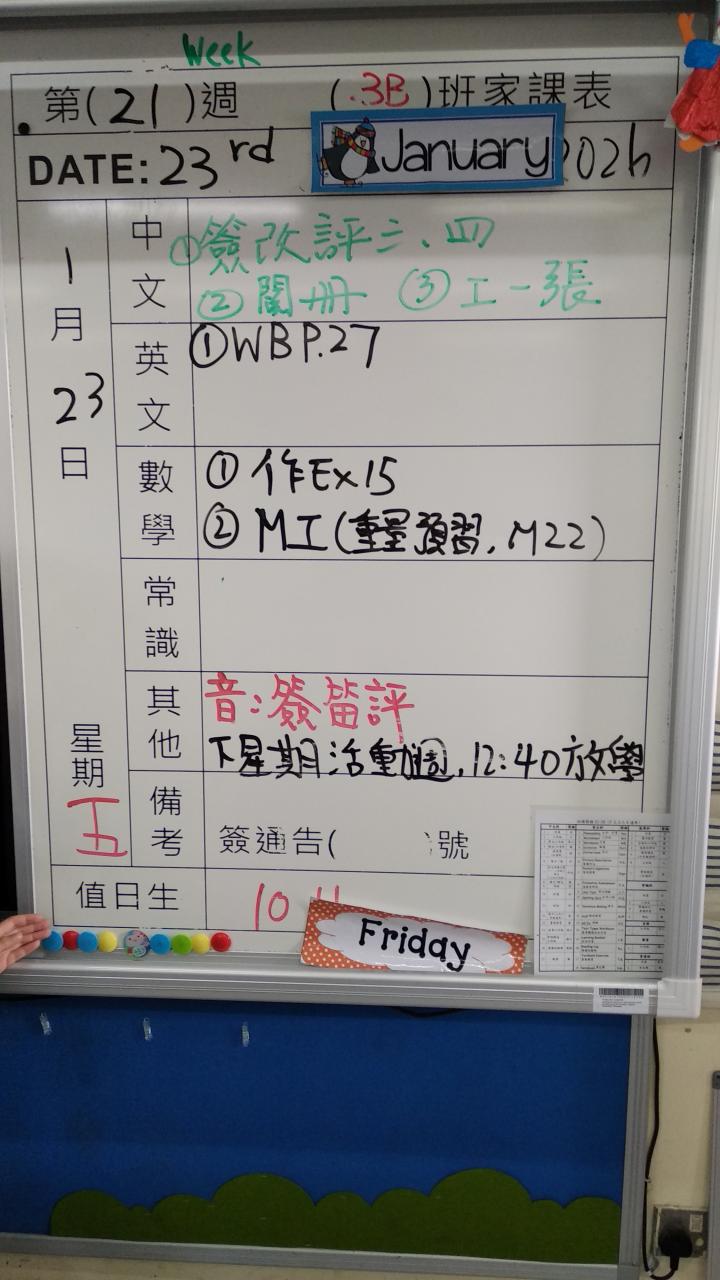 Week
第(21)週 (3B)班家課表
DATE: 23rd January 2026
1月23日
星期五
中文
①簽改評三、四
②閣冊 ③工一張
英文
①WB P.27
數學
①作Ex15
②M工(重量預習, M22)
常識
其他
音:簽笛評
下星期活動週,12:40放學
備考
簽通告( 號
值日生
10 11
Friday